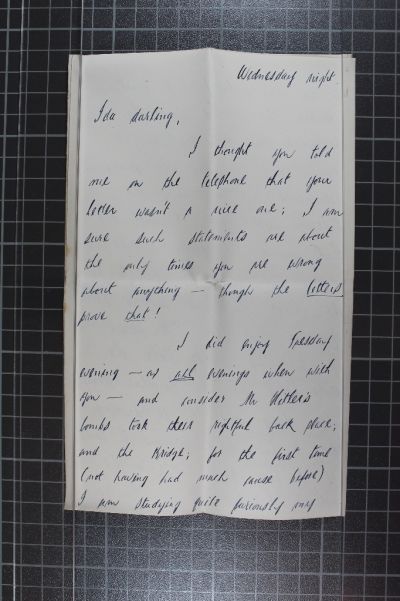 Wednesday night
Ida darling,
I thought you told
me on the telephone that your
letter wasn't a nice one; I am
sure such statements are about
the only times you are wrong
about anything — though the letters
prove that!
I did enjoy Tuesday
evening — as all evenings when with
you — and consider Mr Hitler's
bombs took their rightful back place;
and the Bridge; for the first time
(not having had much cause before)
I am studying quite furiously my